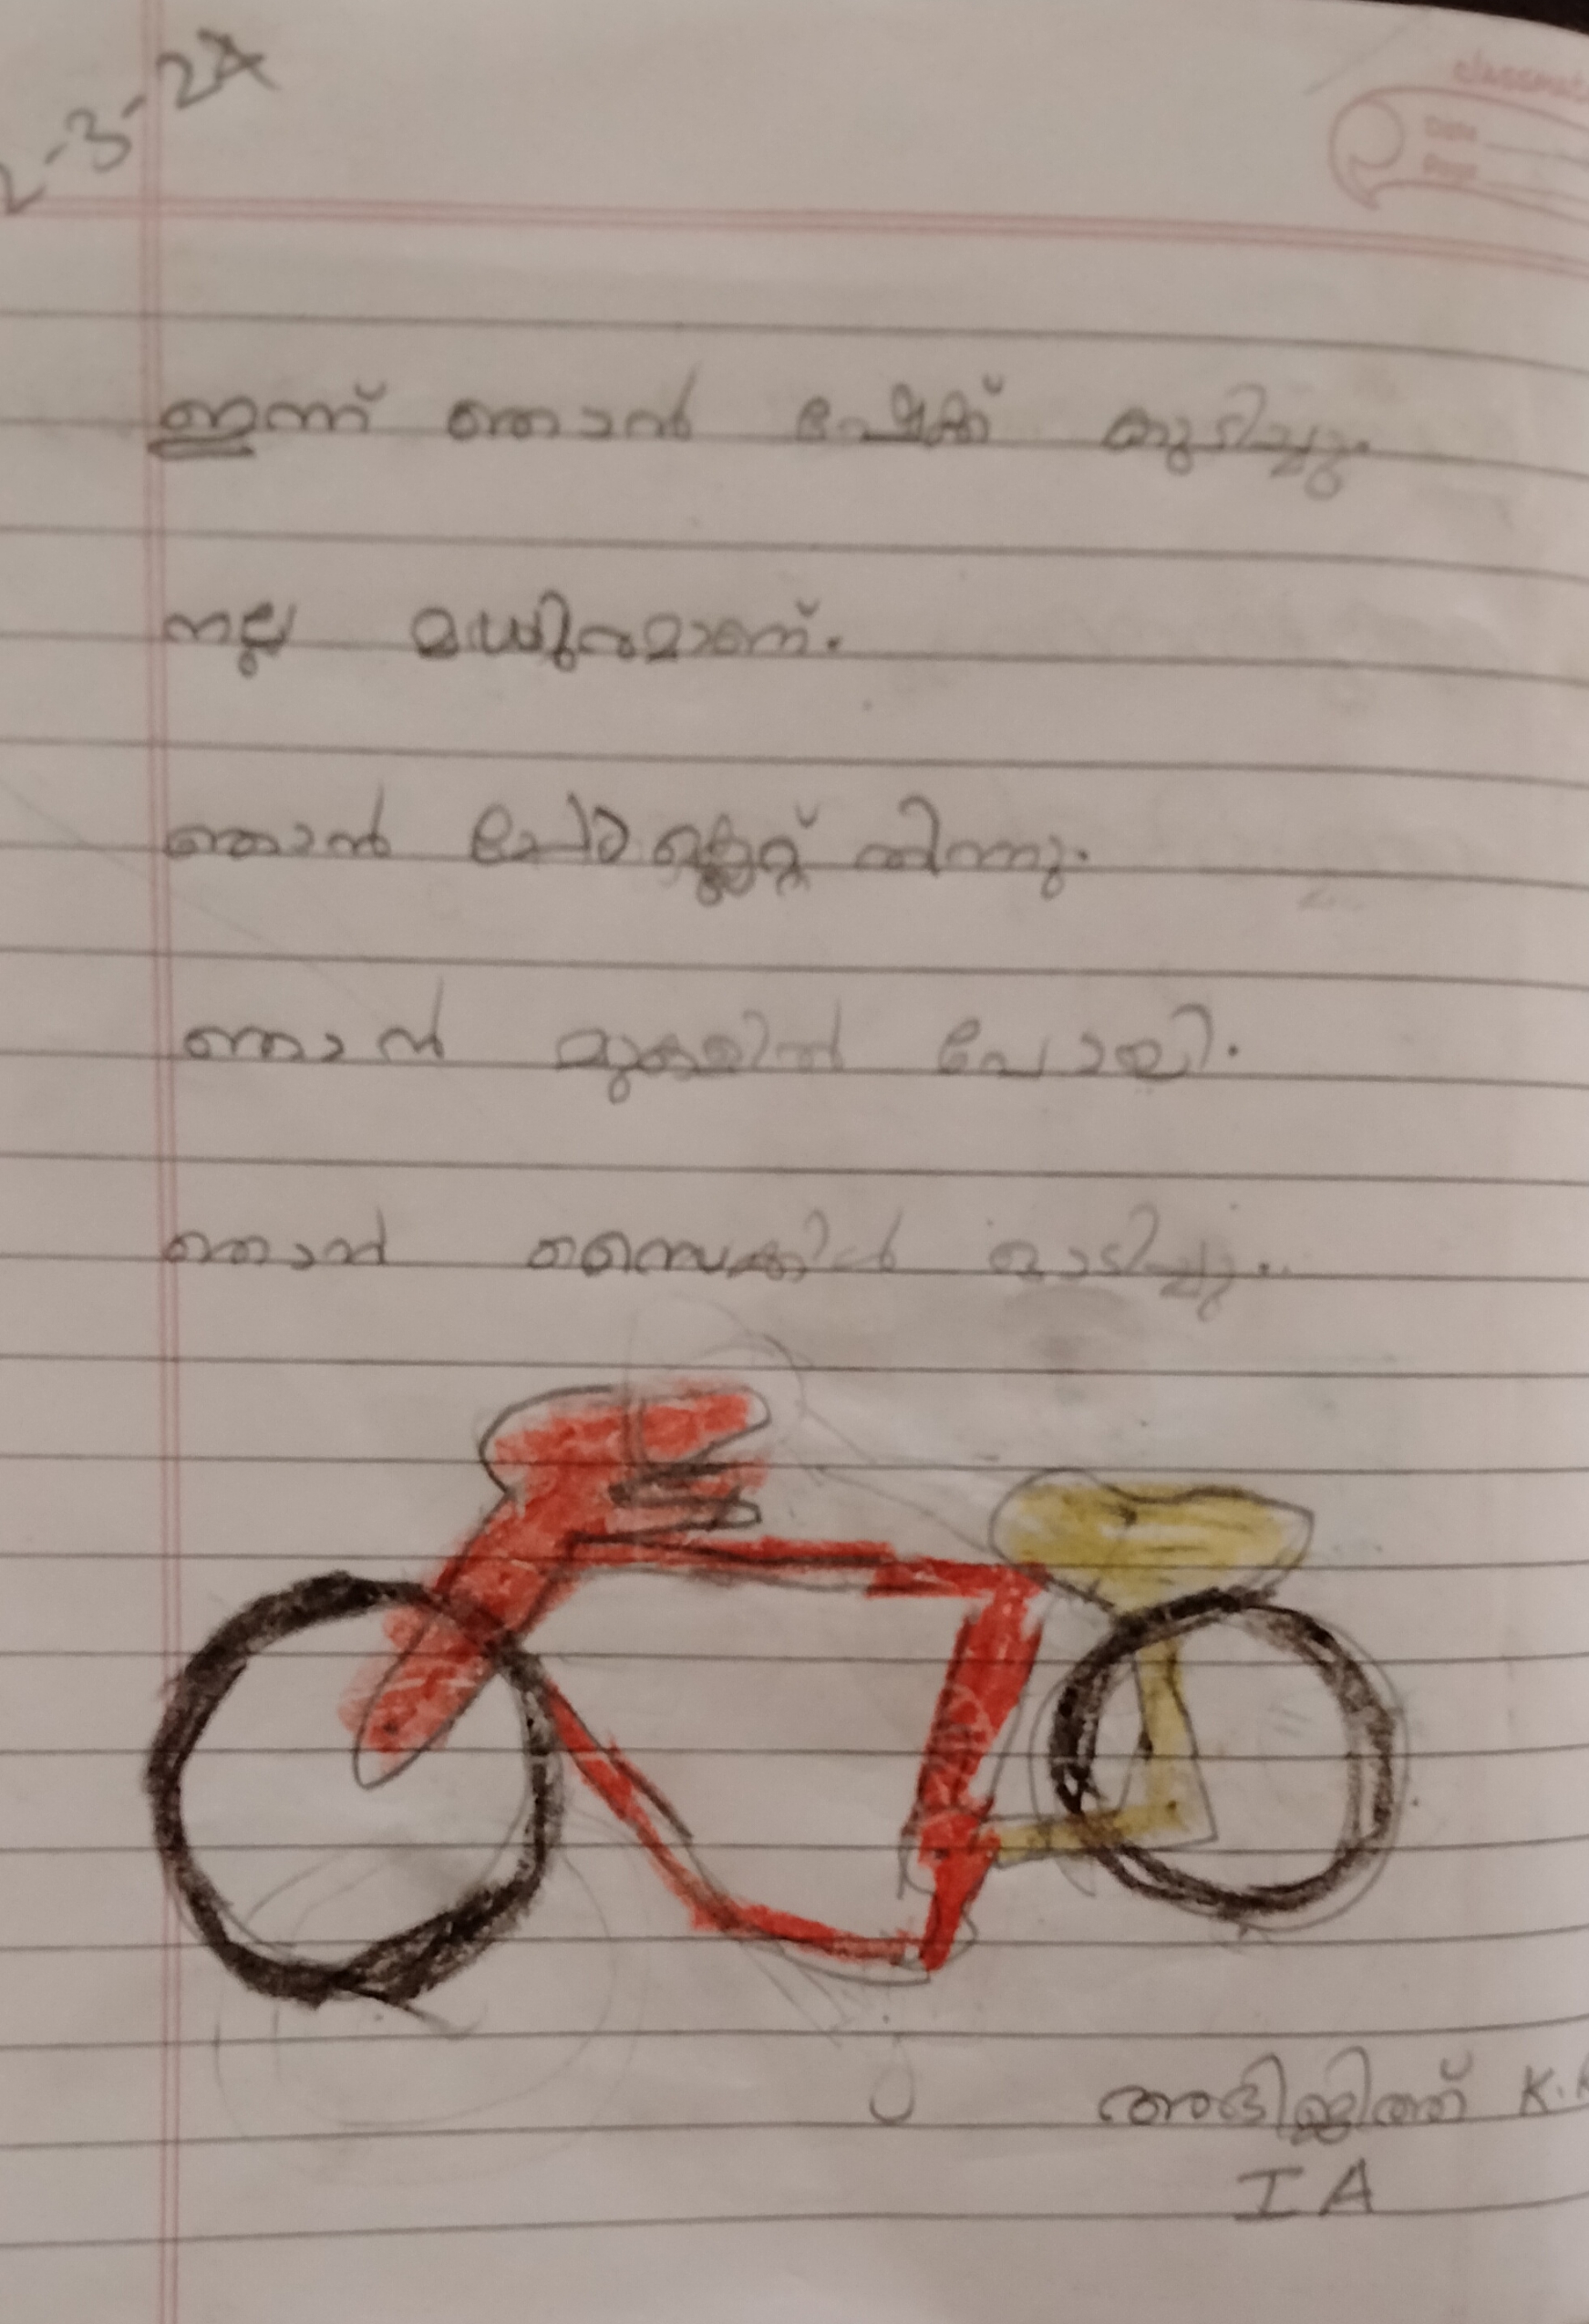 2-3-24
classmate
Date
Page
ഇന്ന് ഞാൻ ഷേക്ക് കുടിച്ചു.
നല്ല മധുരമാണ്.
ഞാൻ ചോക്ലേറ്റ് തിന്നു.
ഞാൻ മുകളിൽ പോയി.
ഞാൻ സൈക്കിൾ ഓടിച്ചു.
K.
I A